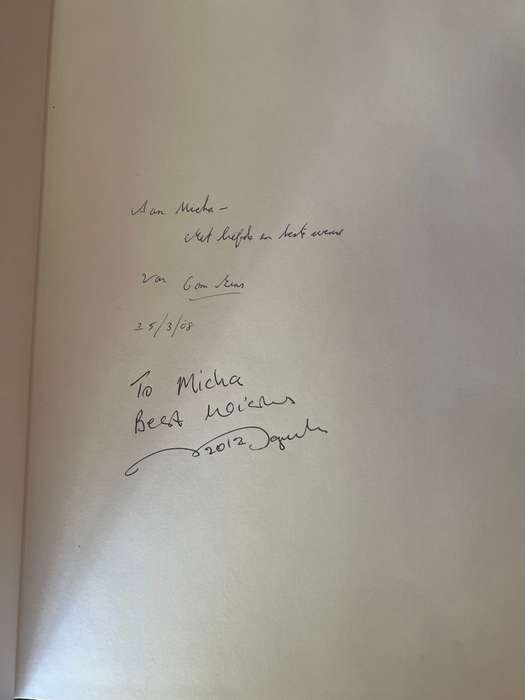 Aan Micha –
Met liefde en beste wense
Van
25/3/08
To Micha
Best Wishes
2012